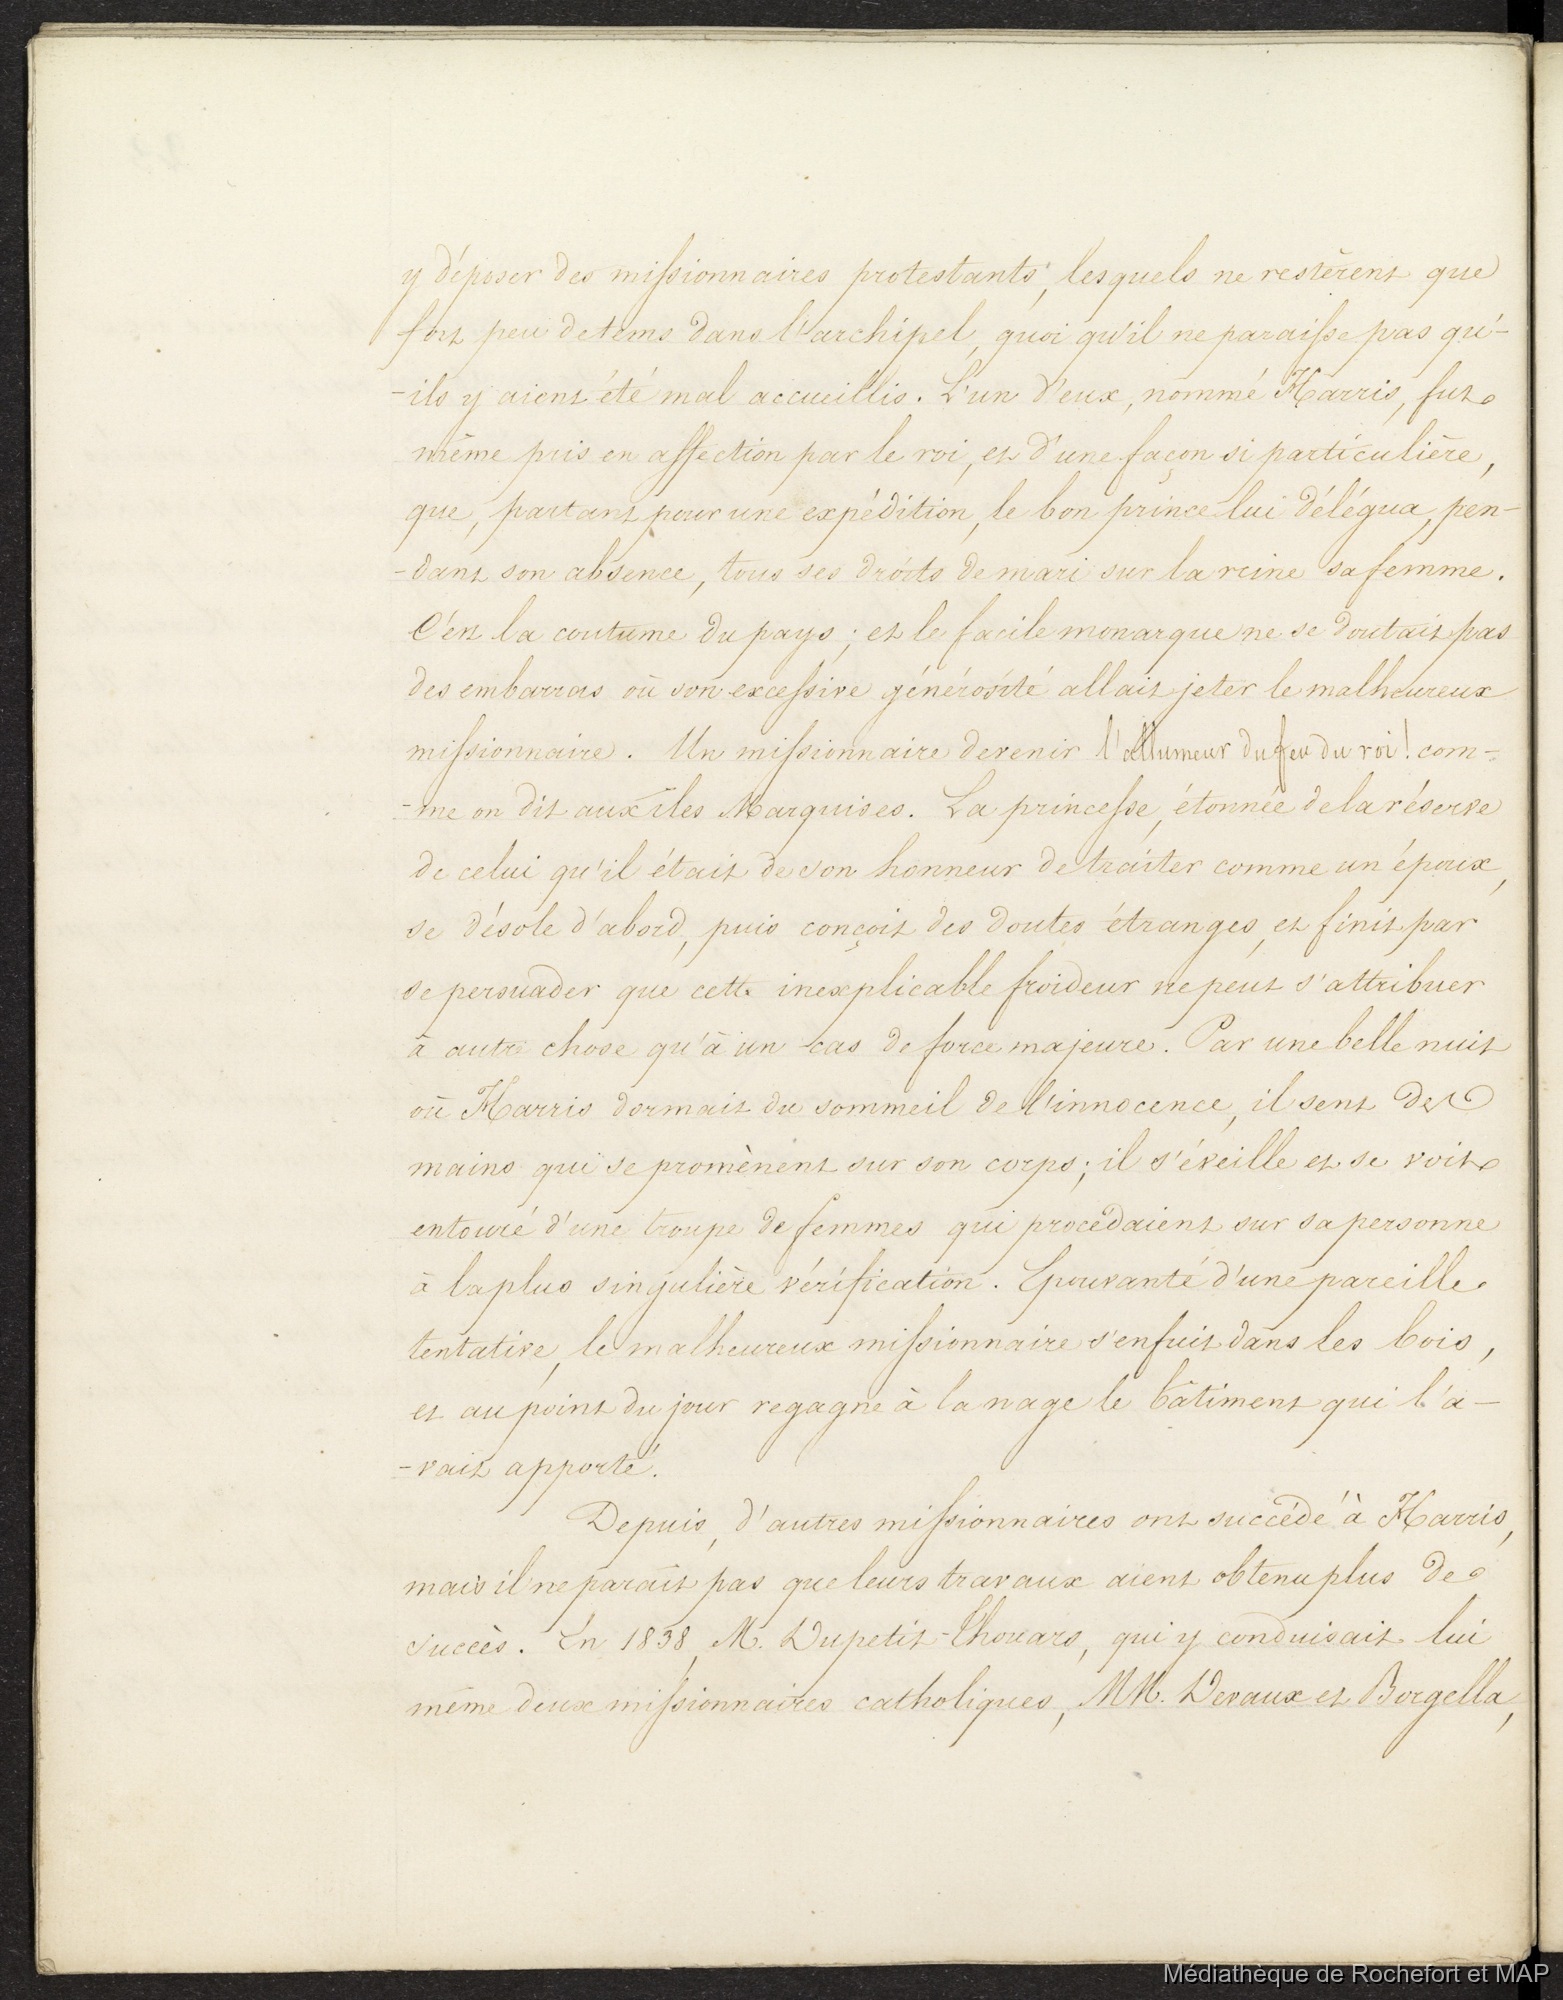 y déposer des missionnaires protestants, lesquels ne restèrent que
fort peu de tems dans l'archipel, quoi qu'il ne paraisse pas qu'-
-ils y aient été mal accueillis. L'un d'eux, nommé Harris, fut
même pris en affection par le roi, et d'une façon si particulière,
que, partant pour une expédition, le bon prince lui délégua, pen-
-dant son absence, tous ses droits de mari sur la reine sa femme.
C'est la coutume du pays; et le facile monarque ne se doutait pas
des embarras où son excessive générosité allait jeter le malheureux
missionnaire. Un missionnaire devenir l'allumeur du feu du roi! com-
-me on dit aux îles Marquises. La princesse, étonnée de la réserve
de celui qu'il était de son honneur de traiter comme un époux,
se désole d'abord, puis conçoit des doutes étranges, et finit par
se persuader que cette inexplicable froideur ne peut s'attribuer
à autre chose qu'à un cas de force majeure. Par une belle nuit
où Harris dormait du sommeil de l'innocence, il sent des
mains qui se promènent sur son corps; il s'éveille et se voit
entouré d'une troupe de femmes qui procédaient sur sa personne
à la plus singulière vérification. Epouvanté d'une pareille
tentative, le malheureux missionnaire s'enfuit dans les bois,
et au point du jour regagne à la nage le bâtiment qui l'a-
-vait apporté.
Depuis, d'autres missionnaires ont succédé à Harris,
mais il ne paraît pas que leurs travaux aient obtenu plus de
succès. En 1838, M. Dupetit-Thouars, qui y conduisait lui
même deux missionnaires catholiques, MM. Devaux et Borgella,
Médiathèque de Rochefort et MAP